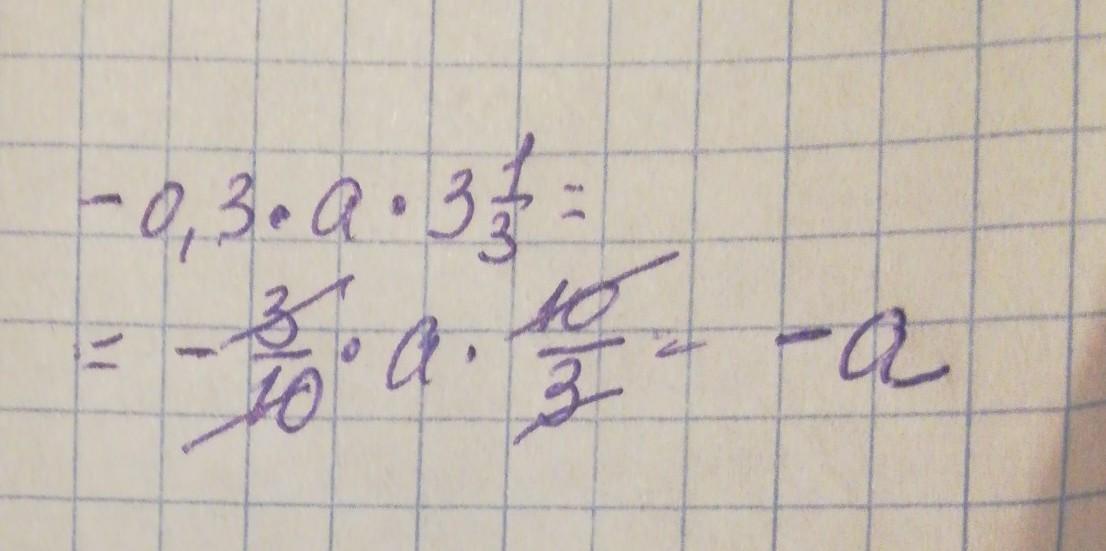 -0,3·a·3 1/3=
= -3/10·a·10/3= -a